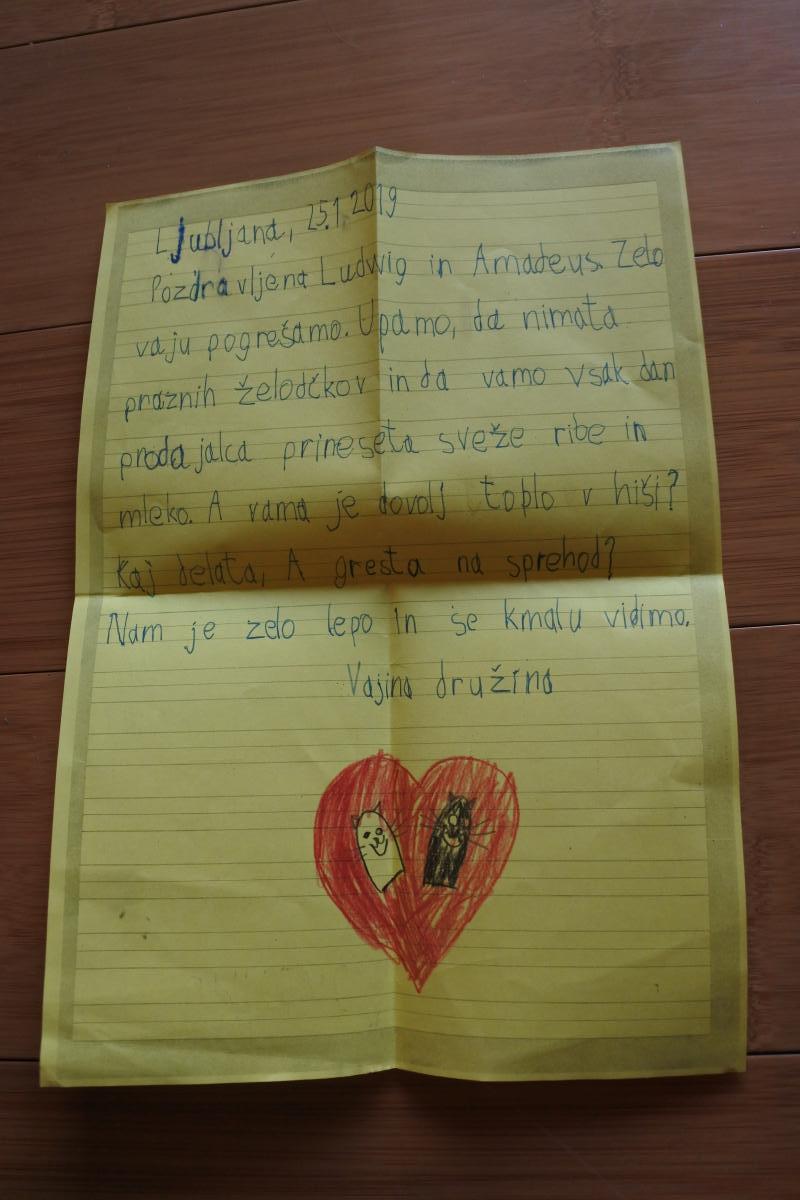 Ljubljana, 25.1.2019
Pozdravljena Ludwig in Amadeus. Zelo
vaju pogrešamo. Upamo, da nimata
praznih želodčkov in da vamo vsak dan
prodajalca prineseta sveže ribe in
mleko. A vama je dovolj toplo v hiši?
Kaj delata, A gresta na sprehod?
Nam je zelo lepo in se kmalu vidimo.
Vajina družina